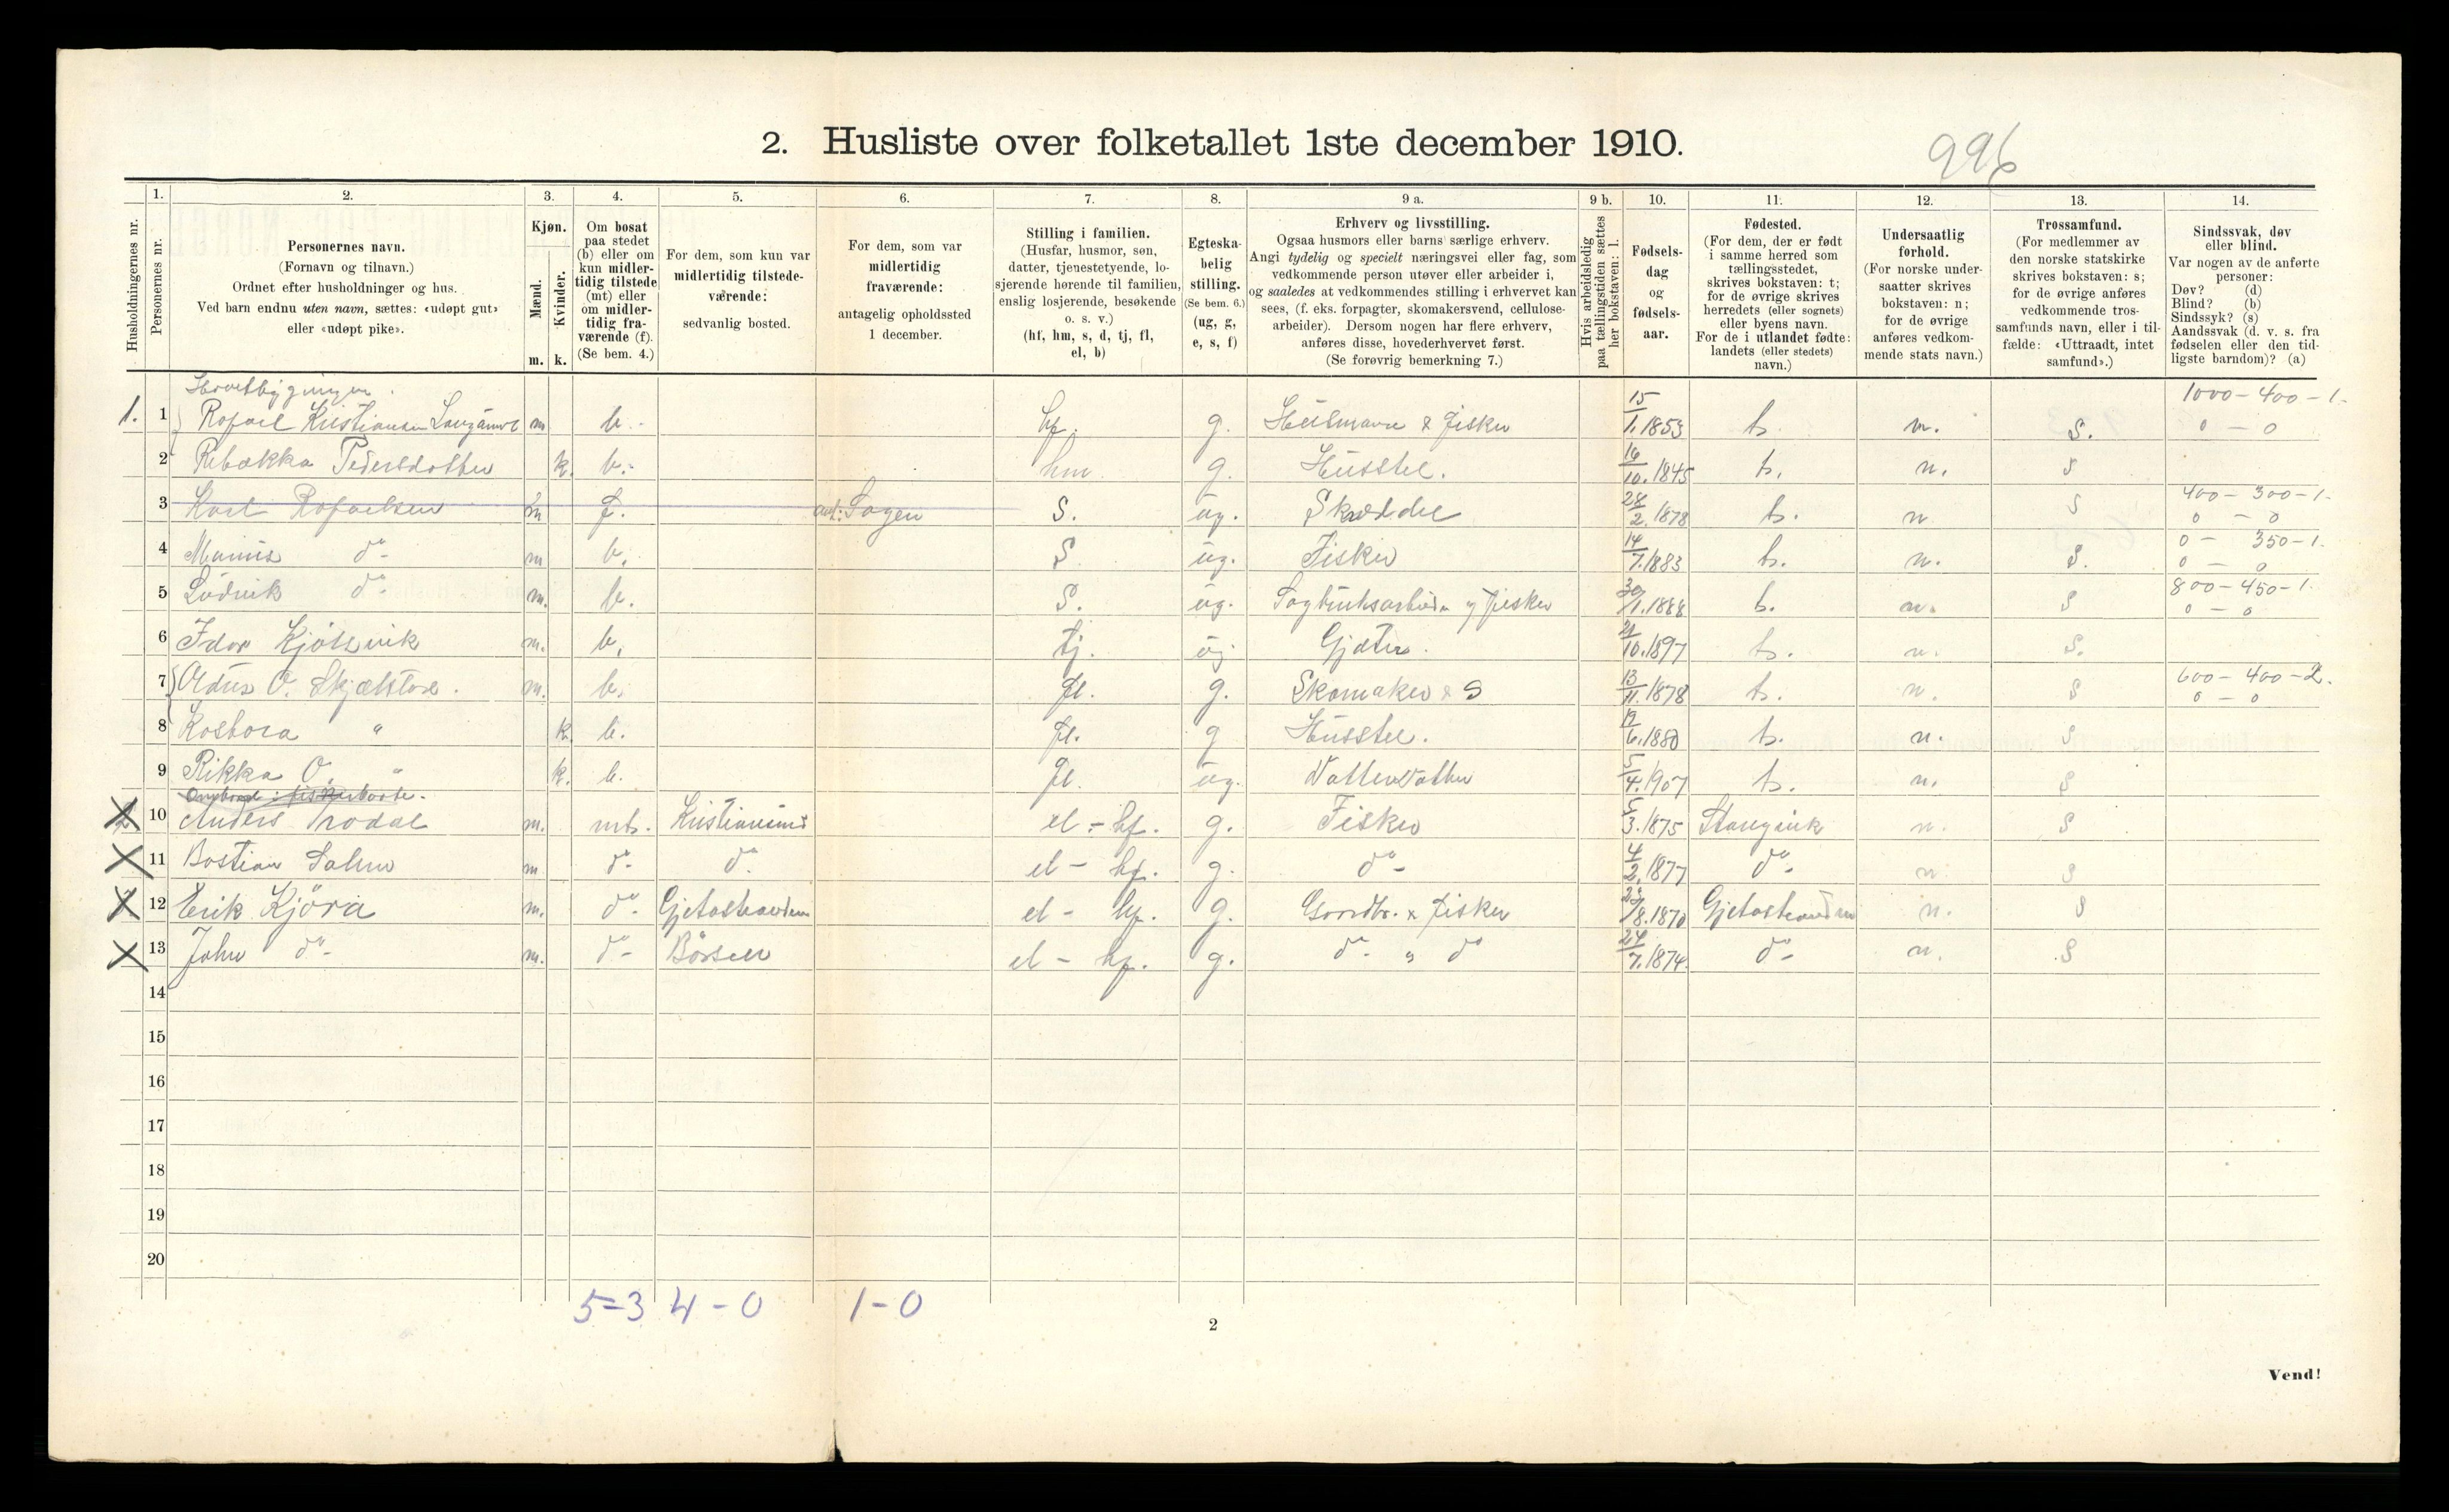 2. Husliste over folketallet 1ste december 1910.
996
1. 2. 3. 4. 5. 6. 7. 8. 9 a. 9 b. 10. 11. 12. 13. 14.
Husholdningernes nr.
Personernes nr.
Personernes navn.
(Fornavn og tilnavn.)
Ordnet efter husholdninger og hus.
Ved barn endnu uten navn, sættes: «udøpt gut»
eller «udøpt pike».
Kjøn.
Mænd.
Kvinder.
m. k.
Om bosat
paa stedet
(b) eller om
kun midler-
tidig tilstede
(mt) eller
om midler-
tidig fra-
værende (f).
(Se bem. 4.)
For dem, som kun var
midlertidig tilstede-
værende:
sedvanlig bosted.
For dem, som var
midlertidig
fraværende:
antagelig opholdssted
1 december.
Stilling i familien.
(Husfar, husmor, søn,
datter, tjenestetyende, lo-
sjerende hørende til familien,
enslig losjerende, besøkende
o. s. v.)
(hf, hm, s, d, tj, fl,
el, b)
Egteska-
belig
stilling.
(Se bem. 6.)
(ug, g,
e, s, f)
Erhverv og livsstilling.
Ogsaa husmors eller barns særlige erhverv.
Angi tydelig og specielt næringsvei eller fag, som
vedkommende person utøver eller arbeider i,
og saaledes at vedkommendes stilling i erhvervet kan
sees, (f. eks. forpagter, skomakersvend, cellulose-
arbeider). Dersom nogen har flere erhverv,
anføres disse, hovederhvervet først.
(Se forøvrig bemerkning 7.)
Hvis arbeidsledig
paa tællingstiden sættes
her bokstaven: l.
Fødsels-
dag
og
fødsels-
aar.
Fødested.
(For dem, der er født
i samme herred som
tællingsstedet,
skrives bokstaven: t;
for de øvrige skrives
herredets (eller sognets)
eller byens navn.
For de i utlandet fødte:
landets (eller stedets)
navn.)
Undersaatlig
forhold.
(For norske under-
saatter skrives
bokstaven: n;
for de øvrige
anføres vedkom-
mende stats navn.)
Trossamfund.
(For medlemmer av
den norske statskirke
skrives bokstaven: s;
for de øvrige anføres
vedkommende tros-
samfunds navn, eller i til-
fælde: «Uttraadt, intet
samfund».)
Sindssvak, døv
eller blind.
Var nogen av de anførte
personer:
Døv? (d)
Blind? (b)
Sindssyk? (s)
Aandssvak (d. v. s. fra
fødselen eller den tid-
ligste barndom)? (a)
1000 - 400 - 1.
1. 1 Rofael Kristiansen m b. hf. g. Husmann & fisker 15/1.1853 t. n. s. 0 - 0
2 Rebekka Pedersdotter k. b. hm g. Husstel. 16/10.1845 t. n. s
400 - 300 - 1.
3 Karl Rofaelsen m f. s. ug. 28/2.1878 t. n s 0 - 0
0 - 350 - 1.
4 do - m b. s ug. Fisker 14/7.1883 t. n. s. 0 - 0
800 - 450 - 1.
5 Ludvik do m. b. s. ug. Sagbruksarbeider og fisker 30/1.1888 t. n. s 0 - 0
6 m. b. tj. ug Gjæter. 10.1897 t. n. s.
600 - 400 - 2.
7 m. b. fl. g. Skomaker & S 13/11.1878 t. n. s 0 - 0
8 " k b. fl. g Husstel. 19/6.1880 t. n. s
9 Rikka O. " k. b. fl. ug. 5/4.1907 t. n. s
10 Anders m. mt. el - hf. g. Fisker 5/3.1875 Stangvik n. s
11 Bastian m. do - do el - hf. g. do - 4/2.1877 do - n s
12 Erik Kjöra m. do - el - hf. g. Gaardbr. & fisker 8.1870 n. s
13 John do - m. do - Börsen el - hf. g. do - " do 24/7.1874. do - n. s
14
15
16
17
18
19
20
5 - 3 4 - 0 1 - 0
2
Vend!